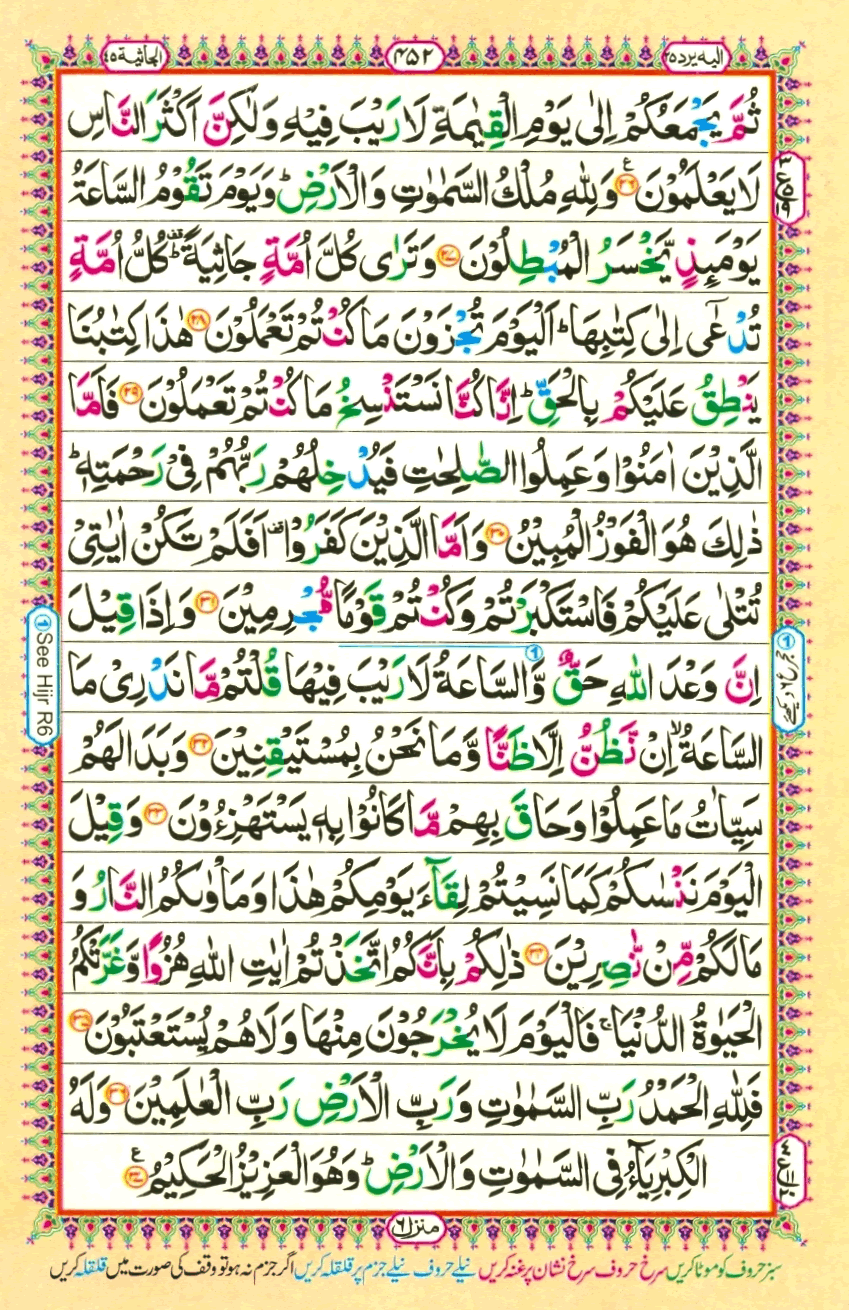 الیه یرد ۲۵
۴۵۲
الجاثیة ۴۵
ثُمَّ يَجْمَعُكُمْ اِلٰى يَوْمِ الْقِيٰمَةِ لَا رَيْبَ فِيْهِ وَلٰكِنَّ اَكْثَرَ النَّاسِ
لَا يَعْلَمُوْنَ ﴿۲۶﴾ ع وَلِلّٰهِ مُلْكُ السَّمٰوٰتِ وَالْاَرْضِ ؕ وَيَوْمَ تَقُوْمُ السَّاعَةُ
يَوْمَئِذٍ يَّخْسَرُ الْمُبْطِلُوْنَ ﴿۲۷﴾ وَتَرٰى كُلَّ اُمَّةٍ جَاثِيَةً ؕ قف كُلُّ اُمَّةٍ
تُدْعٰٓى اِلٰى كِتٰبِهَا ؕ اَلْيَوْمَ تُجْزَوْنَ مَا كُنْتُمْ تَعْمَلُوْنَ ﴿۲۸﴾ هٰذَا كِتٰبُنَا
يَنْطِقُ عَلَيْكُمْ بِالْحَقِّ ؕ اِنَّا كُنَّا نَسْتَنْسِخُ مَا كُنْتُمْ تَعْمَلُوْنَ ﴿۲۹﴾ فَاَمَّا
الَّذِيْنَ اٰمَنُوْا وَعَمِلُوا الصّٰلِحٰتِ فَيُدْخِلُهُمْ رَبُّهُمْ فِيْ رَحْمَتِهٖ ؕ
ذٰلِكَ هُوَ الْفَوْزُ الْمُبِيْنُ ﴿۳۰﴾ وَاَمَّا الَّذِيْنَ كَفَرُوْا قف اَفَلَمْ تَكُنْ اٰيٰتِيْ
تُتْلٰى عَلَيْكُمْ فَاسْتَكْبَرْتُمْ وَكُنْتُمْ قَوْمًا مُّجْرِمِيْنَ ﴿۳۱﴾ وَاِذَا قِيْلَ
اِنَّ وَعْدَ اللّٰهِ حَقٌّ وَّالسَّاعَةُ لَا رَيْبَ فِيْهَا قُلْتُمْ مَّا نَدْرِيْ مَا
السَّاعَةُ ۙ اِنْ نَّظُنُّ اِلَّا ظَنًّا وَّمَا نَحْنُ بِمُسْتَيْقِنِيْنَ ﴿۳۲﴾ وَبَدَا لَهُمْ
سَيِّاٰتُ مَا عَمِلُوْا وَحَاقَ بِهِمْ مَّا كَانُوْا بِهٖ يَسْتَهْزِءُوْنَ ﴿۳۳﴾ وَقِيْلَ
الْيَوْمَ نَنْسٰىكُمْ كَمَا نَسِيْتُمْ لِقَآءَ يَوْمِكُمْ هٰذَا وَمَاْوٰىكُمُ النَّارُ وَ
مَا لَكُمْ مِّنْ نّٰصِرِيْنَ ﴿۳۴﴾ ذٰلِكُمْ بِاَنَّكُمُ اتَّخَذْتُمْ اٰيٰتِ اللّٰهِ هُزُوًا وَّغَرَّتْكُمُ
الْحَيٰوةُ الدُّنْيَا ۚ فَالْيَوْمَ لَا يُخْرَجُوْنَ مِنْهَا وَلَا هُمْ يُسْتَعْتَبُوْنَ ﴿۳۵﴾
فَلِلّٰهِ الْحَمْدُ رَبِّ السَّمٰوٰتِ وَرَبِّ الْاَرْضِ رَبِّ الْعٰلَمِيْنَ ﴿۳۶﴾ وَلَهُ
الْكِبْرِيَآءُ فِي السَّمٰوٰتِ وَالْاَرْضِ ؕ وَهُوَ الْعَزِيْزُ الْحَكِيْمُ ﴿۳۷﴾ ع
① See Hijr R6
منزل ۶
سبز حروف کو موٹا کریں سرخ حروف سرخ نشان پر غنہ کریں نیلے حروف نیلے جزم پر قلقلہ کریں اگر جزم نہ ہو تو وقف کی صورت میں قلقلہ کریں